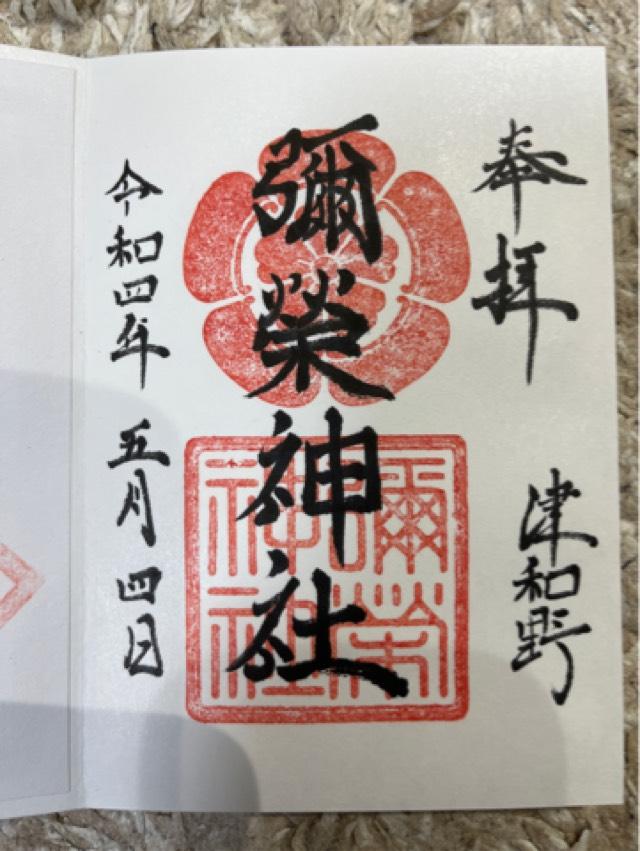 奉拝
津和野
彌榮神社
彌榮
神社
令和四年 五月 四日